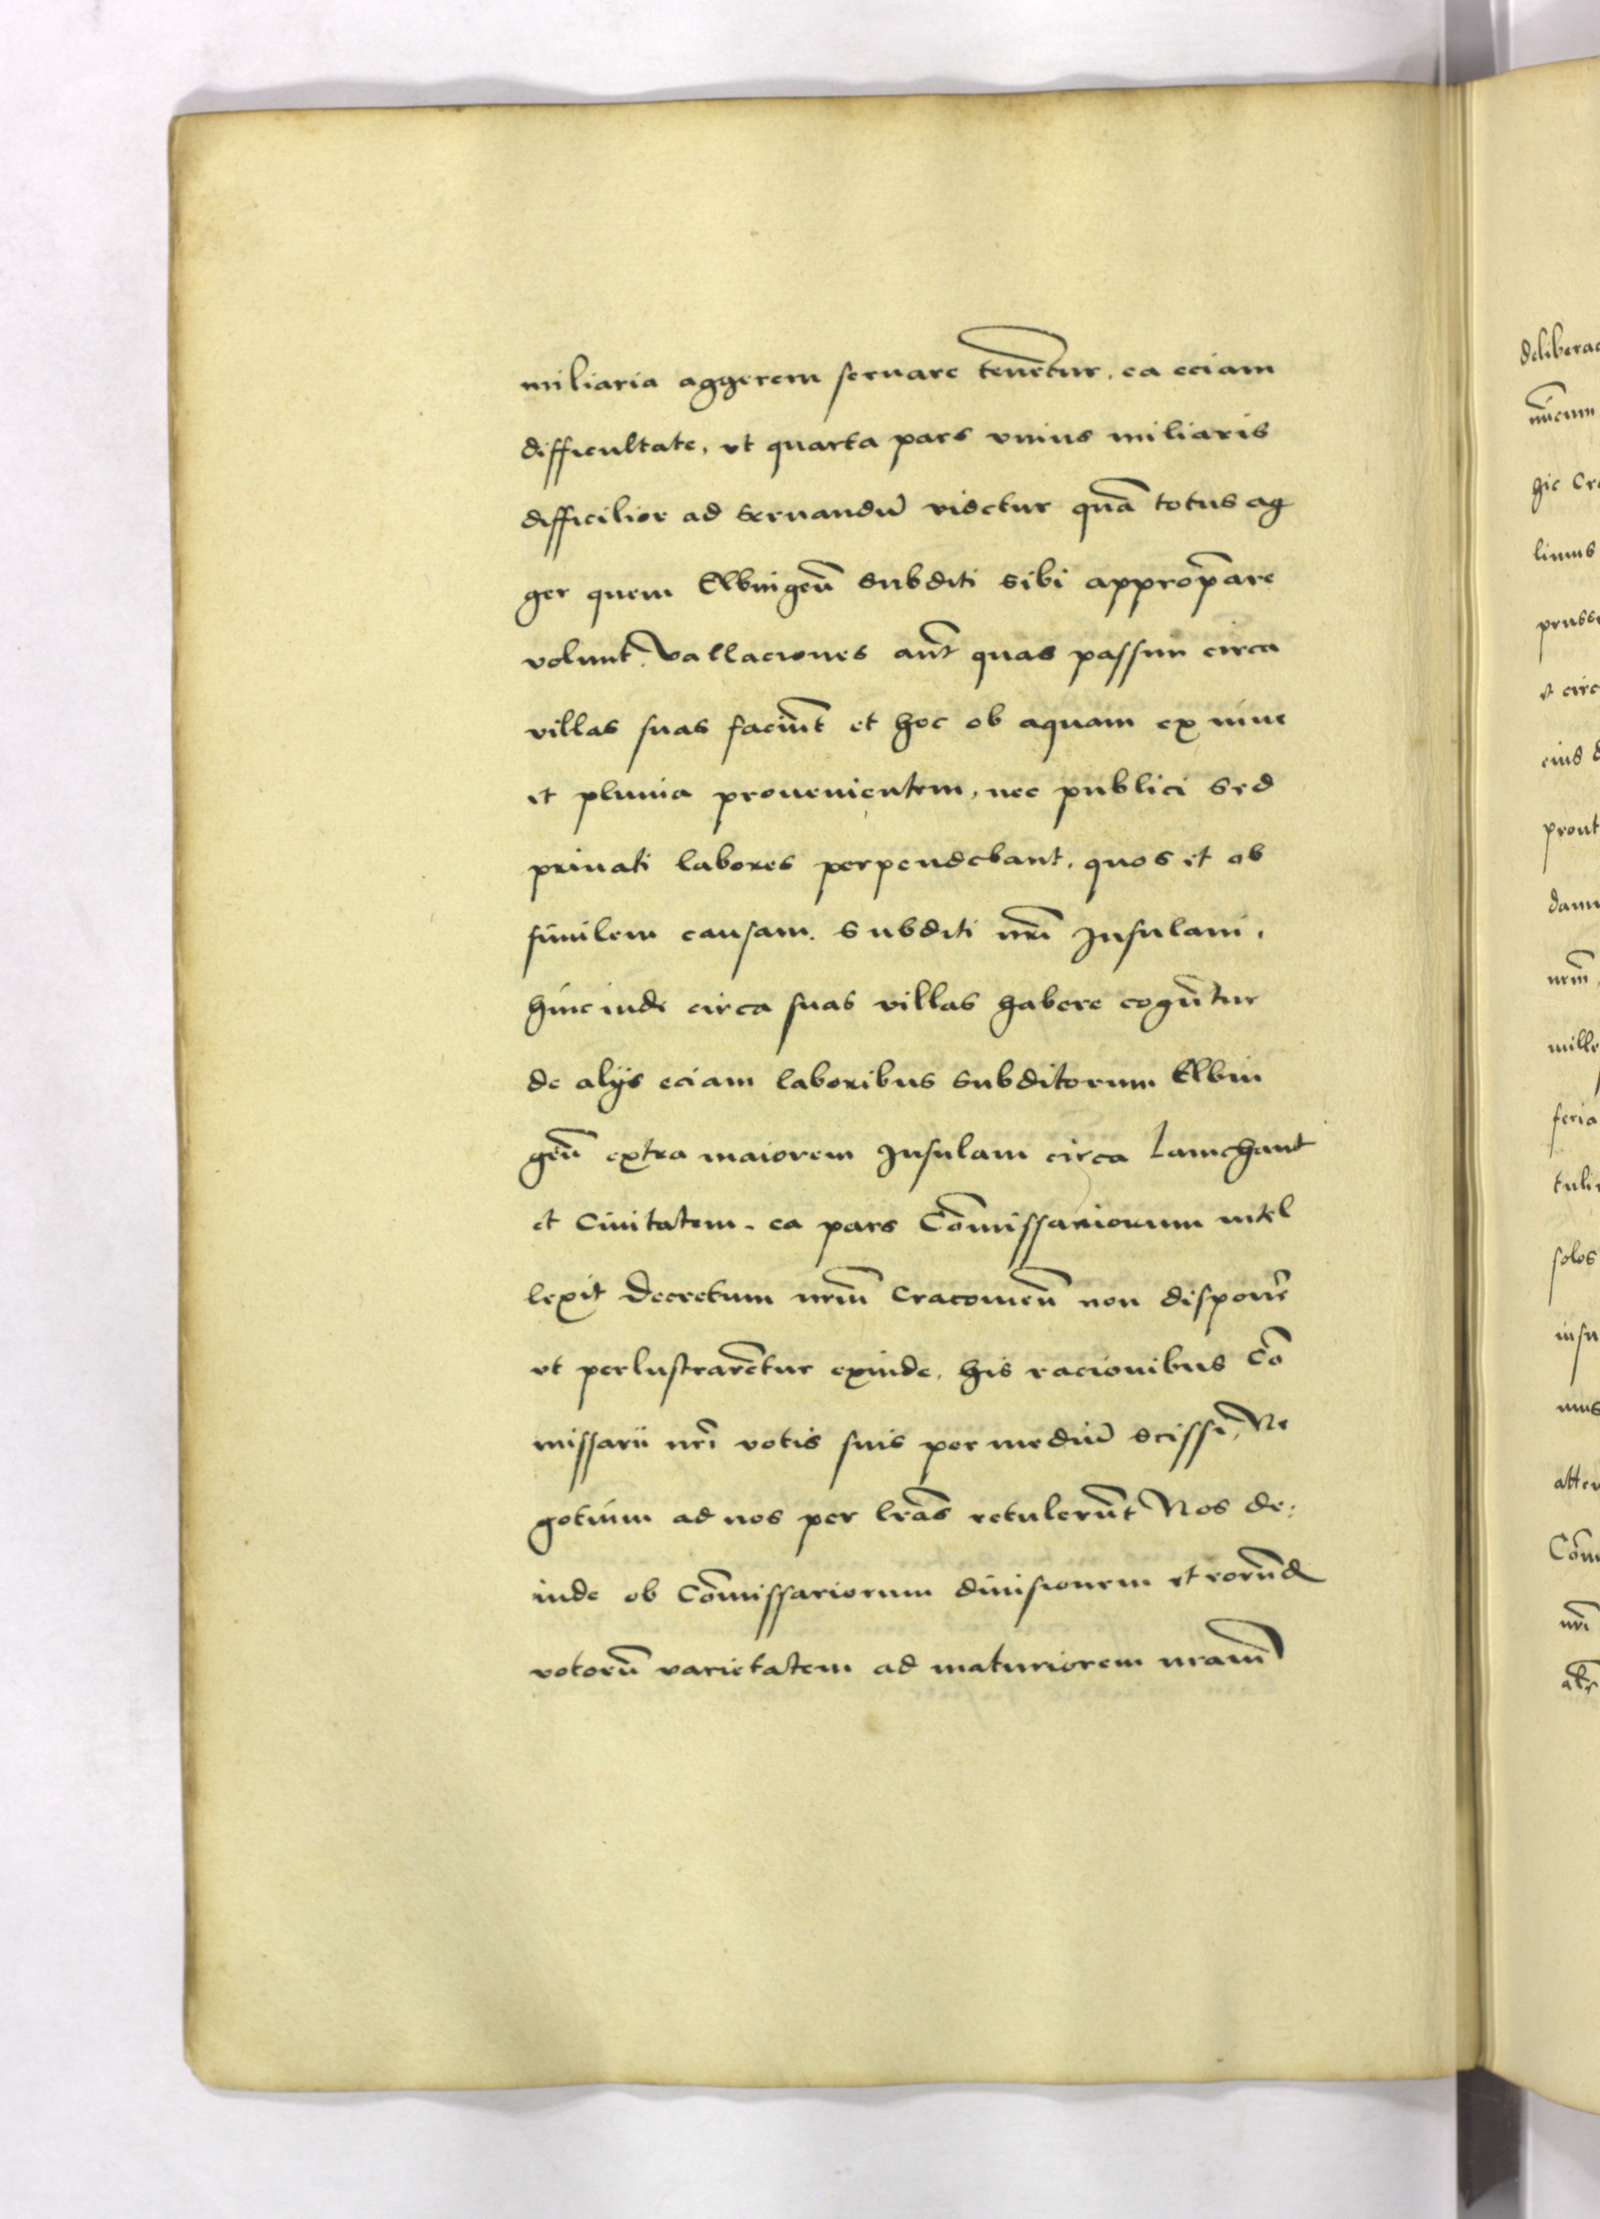 miliaria aggerem seruare teneñtur. ea eciam
difficultate, vt quarta pars vnius miliaris
difficilior ad seruandū videtur quā totus ag
ger quem Elbingeñ subditi sibi appropāre
volunt. Vallaciones aūt quas passim circa
villas suas faciūt et hoc ob aquam ex niue
et pluuia prouenientem, nec publici sed
priuati labores perpendebant. quos et ob
similem causam. subditi nrī Insulani.
hincinde circa suas villas habere cogūntur
de alijs eciam laboribus subditorum Elbin
geñ extra maiorem Insulam circa
et Ciuitatem. ea pars Cōmissariorum intel
lexit decretum nrm̄ Cracouieñ non disponēr
vt perlustrarēntur exinde. his racionibus Cō
missarii nrī votis suis per mediū scissi, Ne
gotium ad nos per lrās retulerūnt Nos de:
inde ob Cōmissariorum diuisionem et eorūnd
votorū varietatem ad maturiorem nram̄
deliberac
hic Cra
prusse
et circ
eius d
prout
nrm̄
mille
feria
tuli
solos
insu
atten
Cōm
nrī